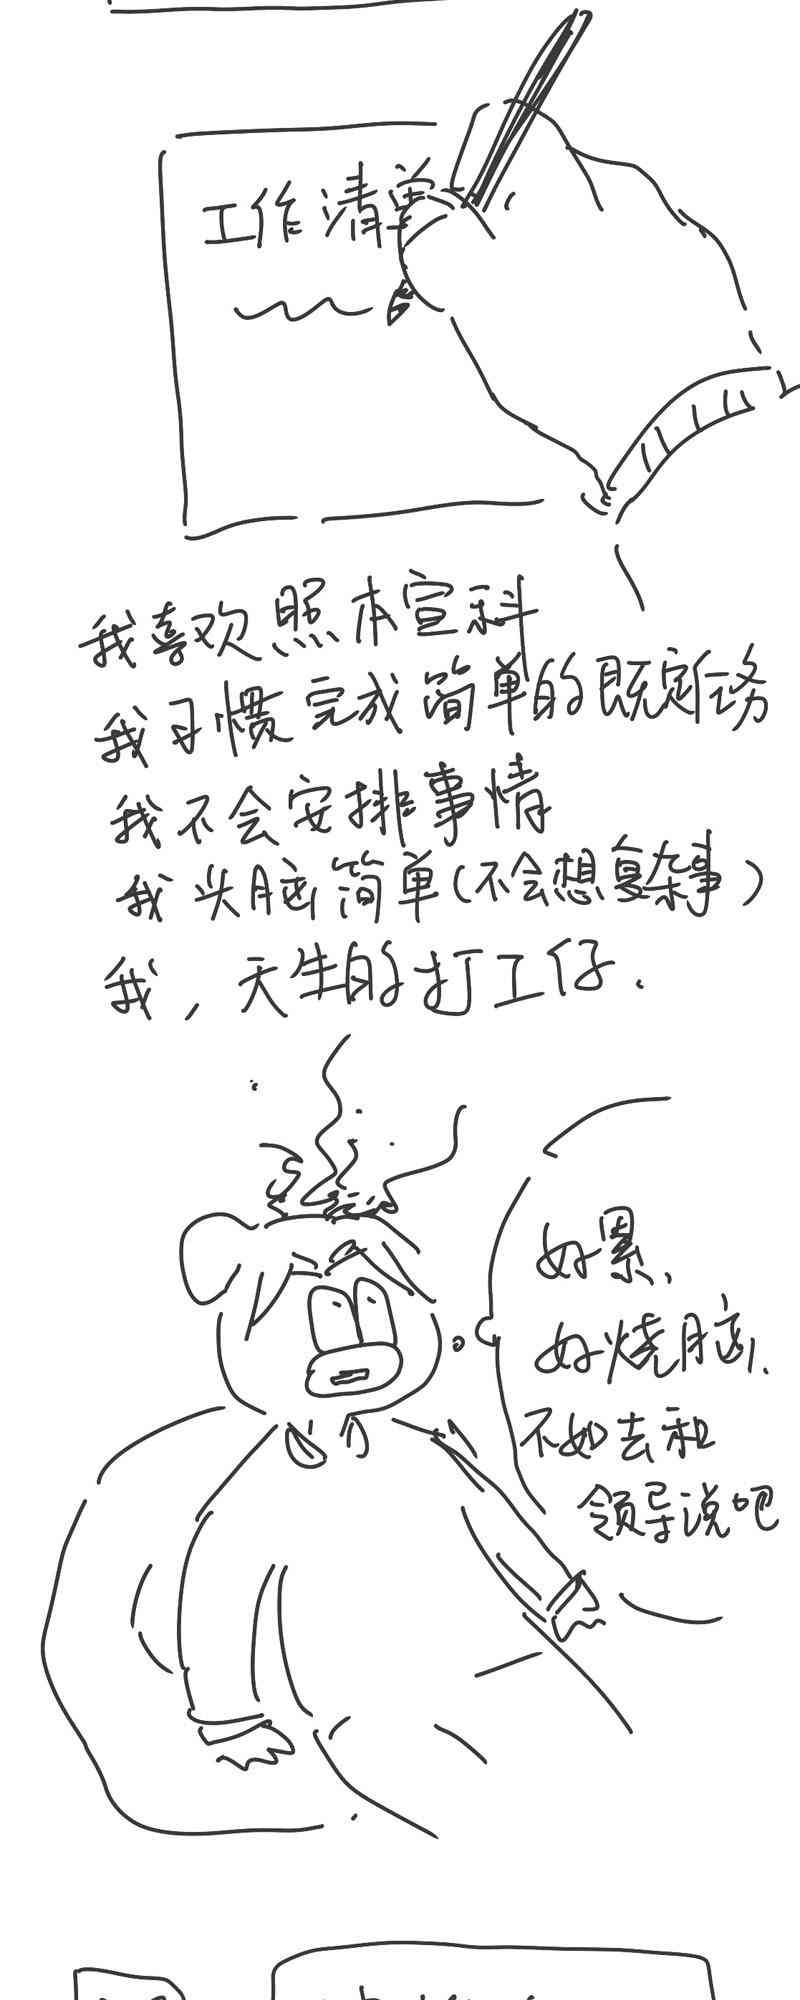 工作清单
我喜欢照本宣科
我习惯完成简单的既定任务
我不会安排事情
我头脑简单(不会想复杂事)
我,天生的打工仔.
好累、
好烧脑、
不如去和
领导说吧